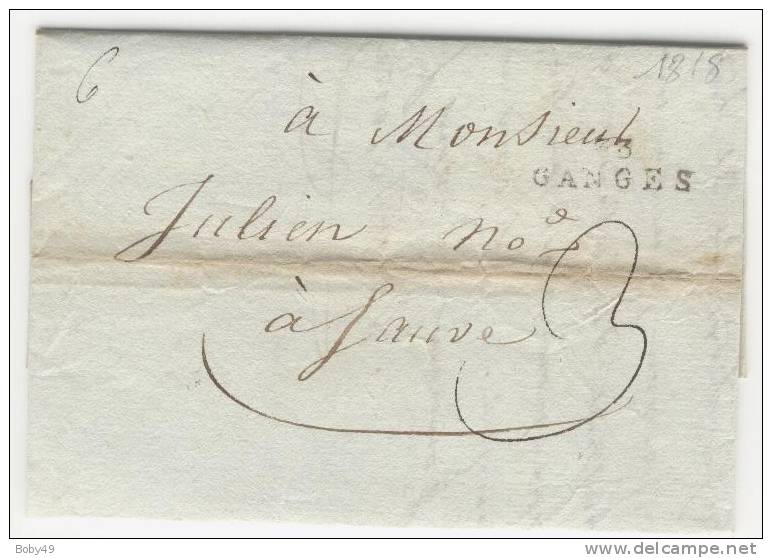 6
1818
à Monsieur
33
GANGES
Julien no.e
à Sauve
3
Boby49
www.delcampe.net